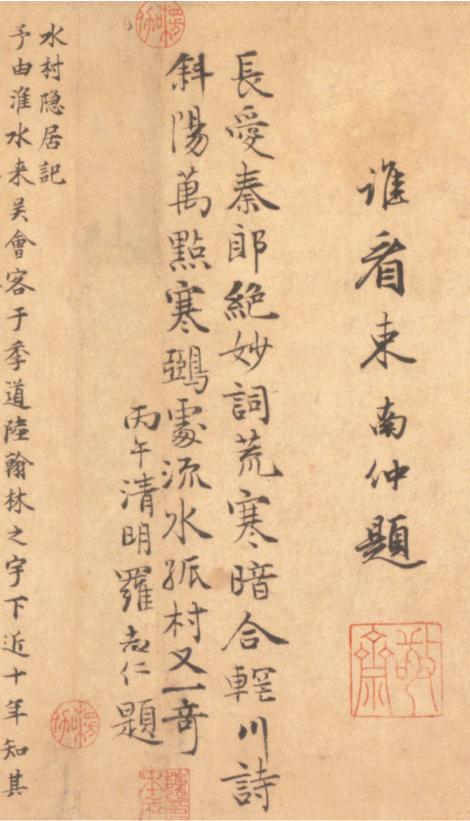 谁看束南仲題
長愛秦郎絶妙詞荒寒暗合輞川詩
斜陽萬點寒鵶處流水孤村又一奇
丙午清明羅志仁題
水村隐居記
予由淮水来吴會客于季道陸翰林之宇下近十年知其